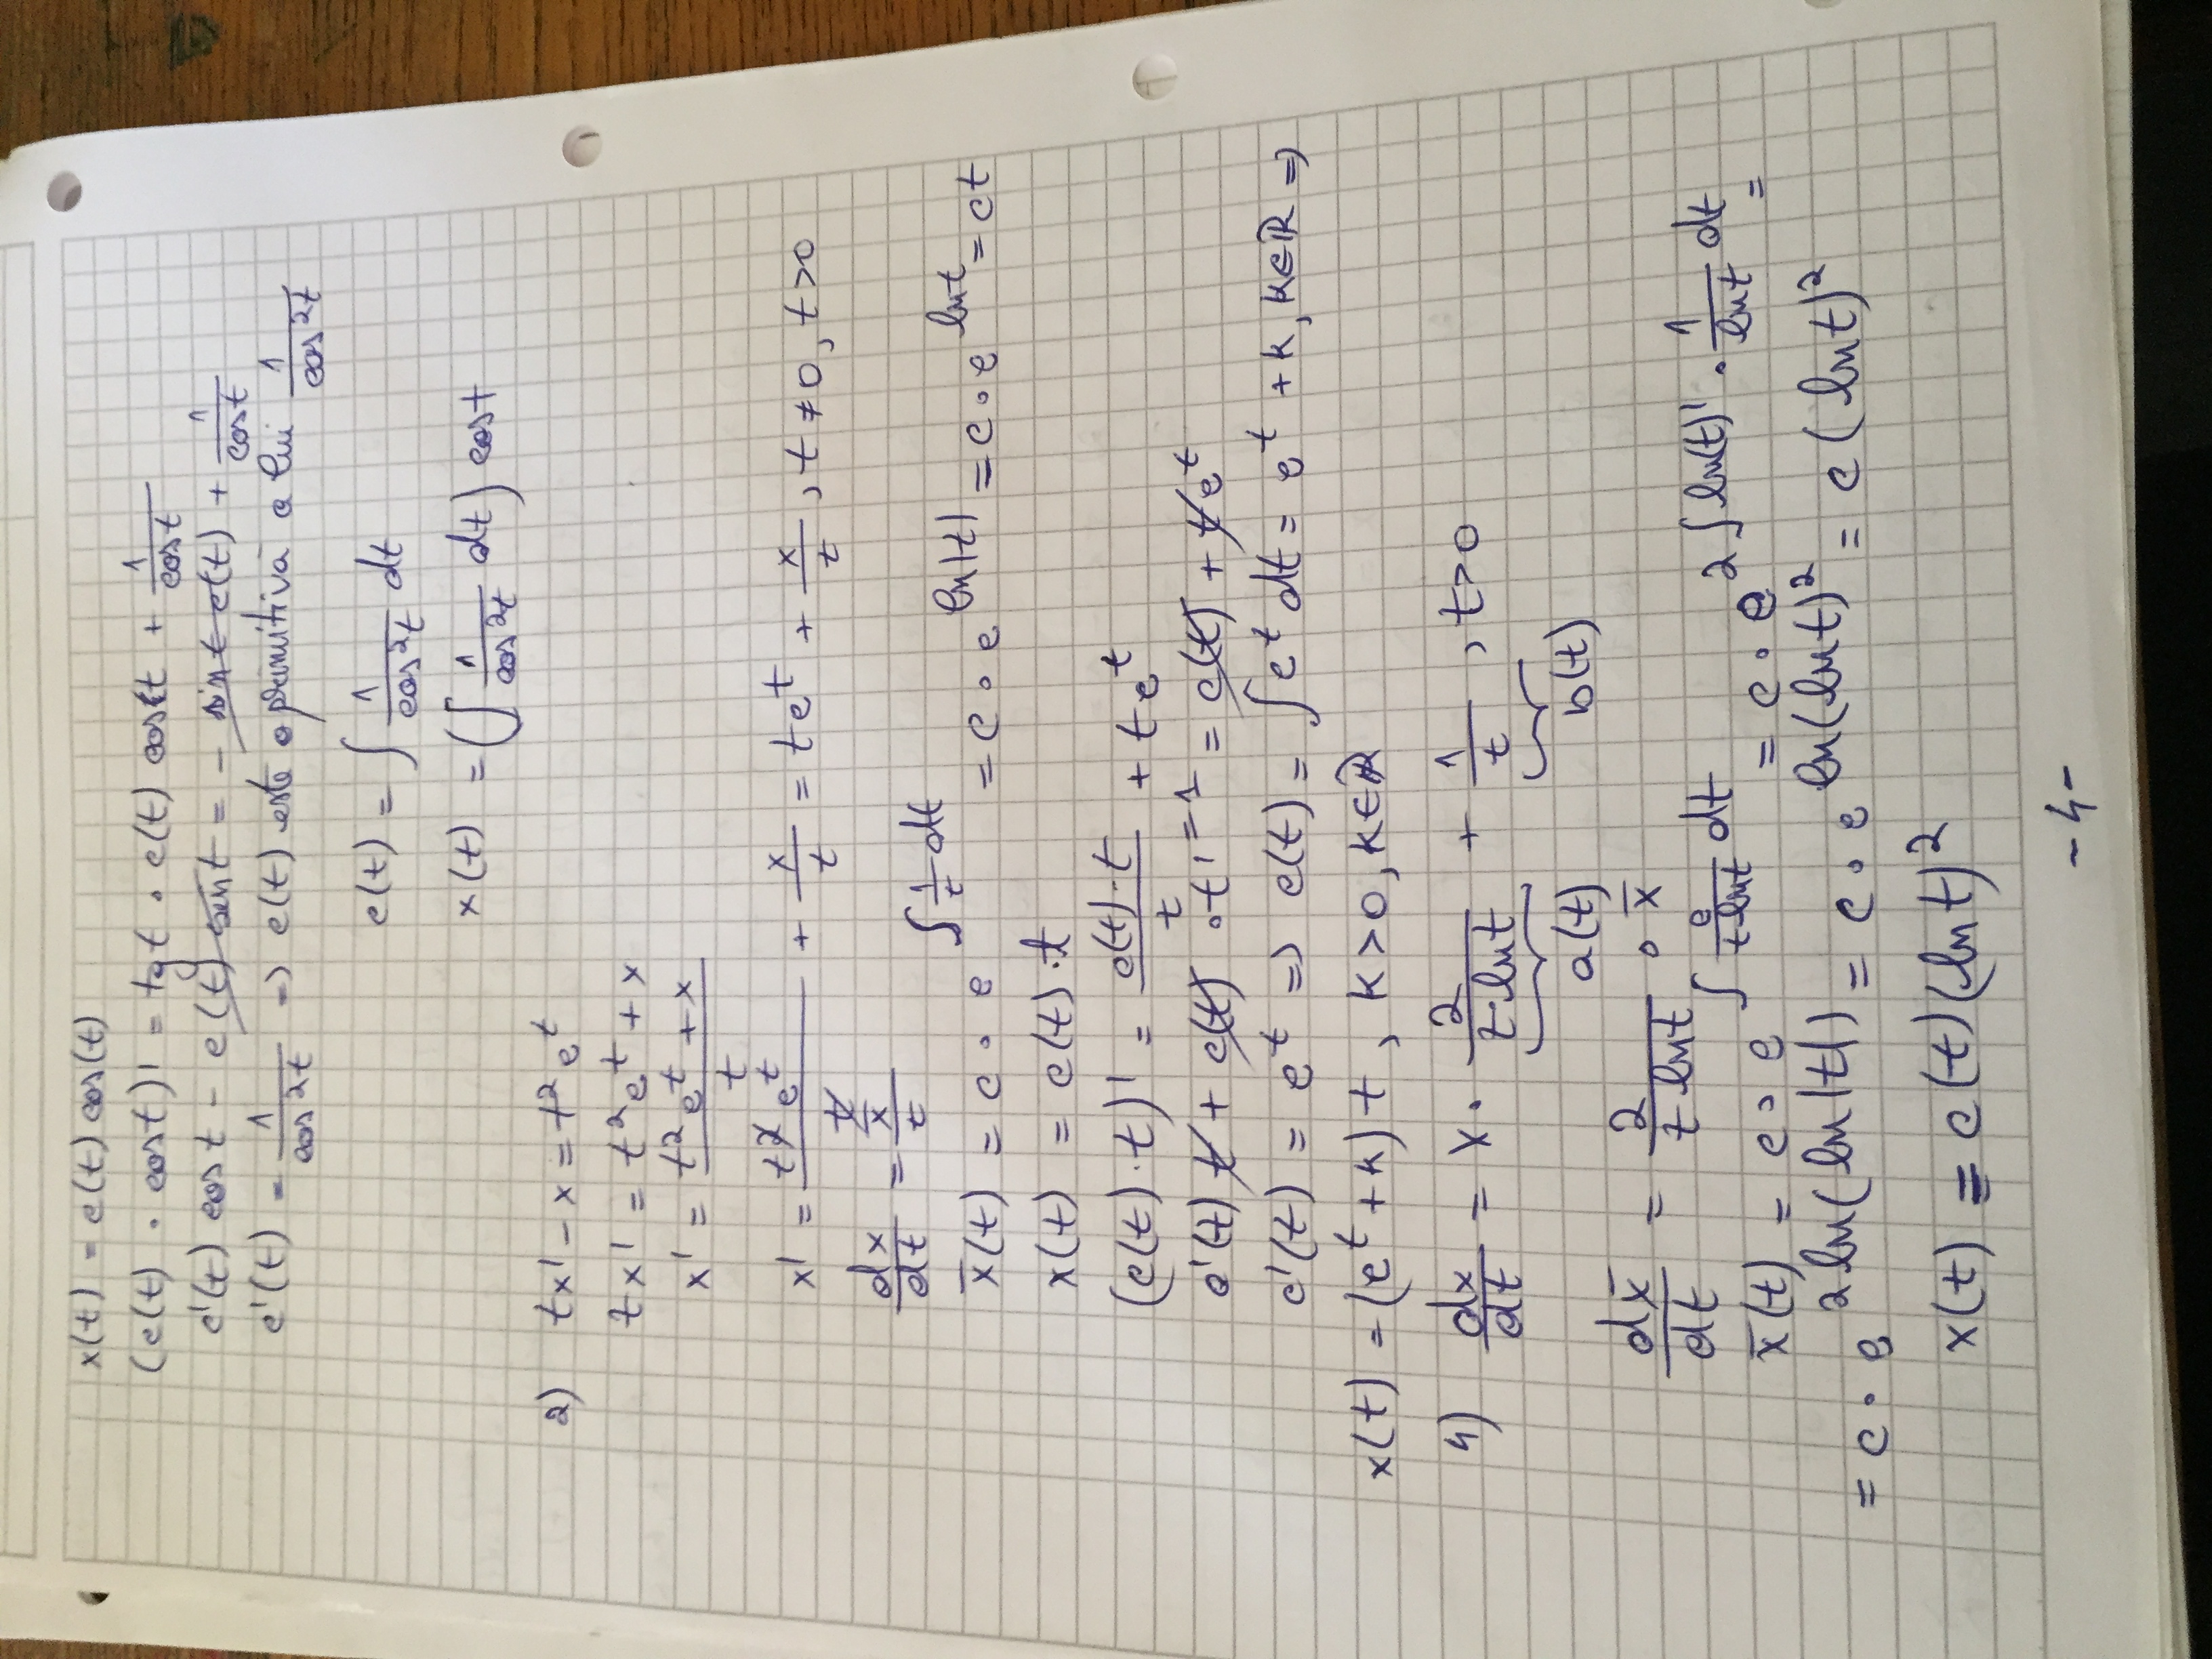 x(t) = c(t) cos(t)
(c(t) · cost)' = tgt · c(t) cost + 1/cost
c'(t) cost - c(t) sint = - sint c(t) + 1/cost
c'(t) = 1/cos²t => c(t) este o primitivă a lui 1/cos²t
c(t) = ∫ 1/cos²t dt
x(t) = (∫ 1/cos²t dt) cost
2) tx' - x = t² e^t
tx' = t² e^t + x
x' = (t² e^t + x)/t
x' = t² e^t/t + x/t = t e^t + x/t, t ≠ 0, t > 0
dx/dt = x/t
x̄(t) = c · e^(∫ 1/t dt) = c · e^(ln|t|) = c · e^(lnt) = ct
x(t) = c(t) · t
(c(t) · t)' = c(t) · t/t + t e^t
c'(t) t + c(t) · t' = 1 = c(t) + t e^t
c'(t) = e^t => c(t) = ∫ e^t dt = e^t + k, k ∈ ℝ =>
x(t) = (e^t + k) t, k > 0, k ∈ ℝ
4) dx/dt = x · 2/(t·lnt) + 1/t, t > 0
a(t) b(t)
dx̄/dt = 2/(t lnt) · x̄
x̄(t) = c · e^(∫ 2/(t·lnt) dt) = c · e^(2∫ ln(t)' · 1/lnt dt) =
= c · e^(2 ln(ln|t|)) = c · e^(ln(lnt)²) = c (lnt)²
x(t) = c(t) (lnt)²
-4-